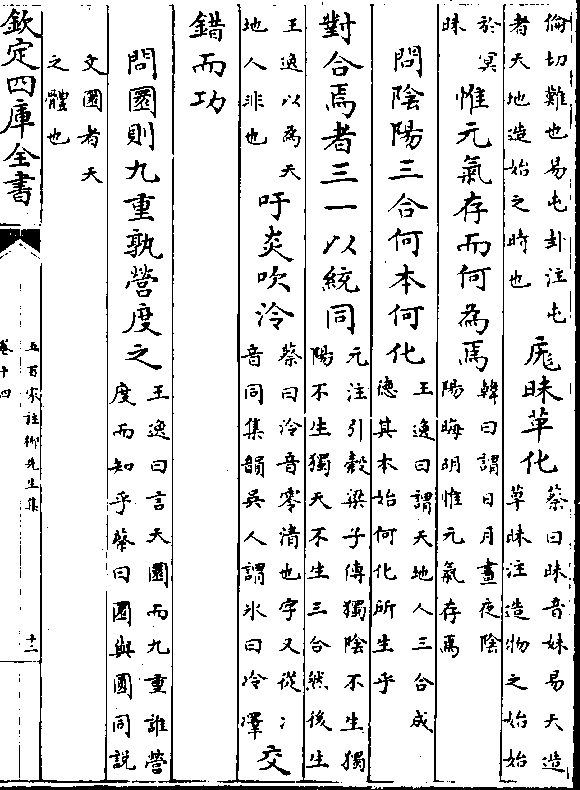 倫切難也易屯卦注屯
者天地造始之時也
厖昧革化
蔡曰昧音妹易天造
草昧注造物之始始
於冥
昧
惟元氣存而何為焉
韓曰謂日月晝夜陰
陽晦明惟元氣存焉
問陰陽三合何本何化
王逸曰謂天地人三合成
德其本始何化所生乎
對合焉者三一以統同
元注引穀梁子傳獨陰不生獨
陽不生獨天不生三合然後生
王逸以為天
地人非也
吁炎吹泠
蔡曰泠音零清也字又從冫
音同集韻吳人謂氷曰冷澤
交
錯而功
問圜則九重孰營度之
王逸曰言天圜而九重誰營
度而知乎蔡曰圜與圓同說
文圜者天
之體也
欽定四庫全書
五百家注柳先生集
卷十四
十二